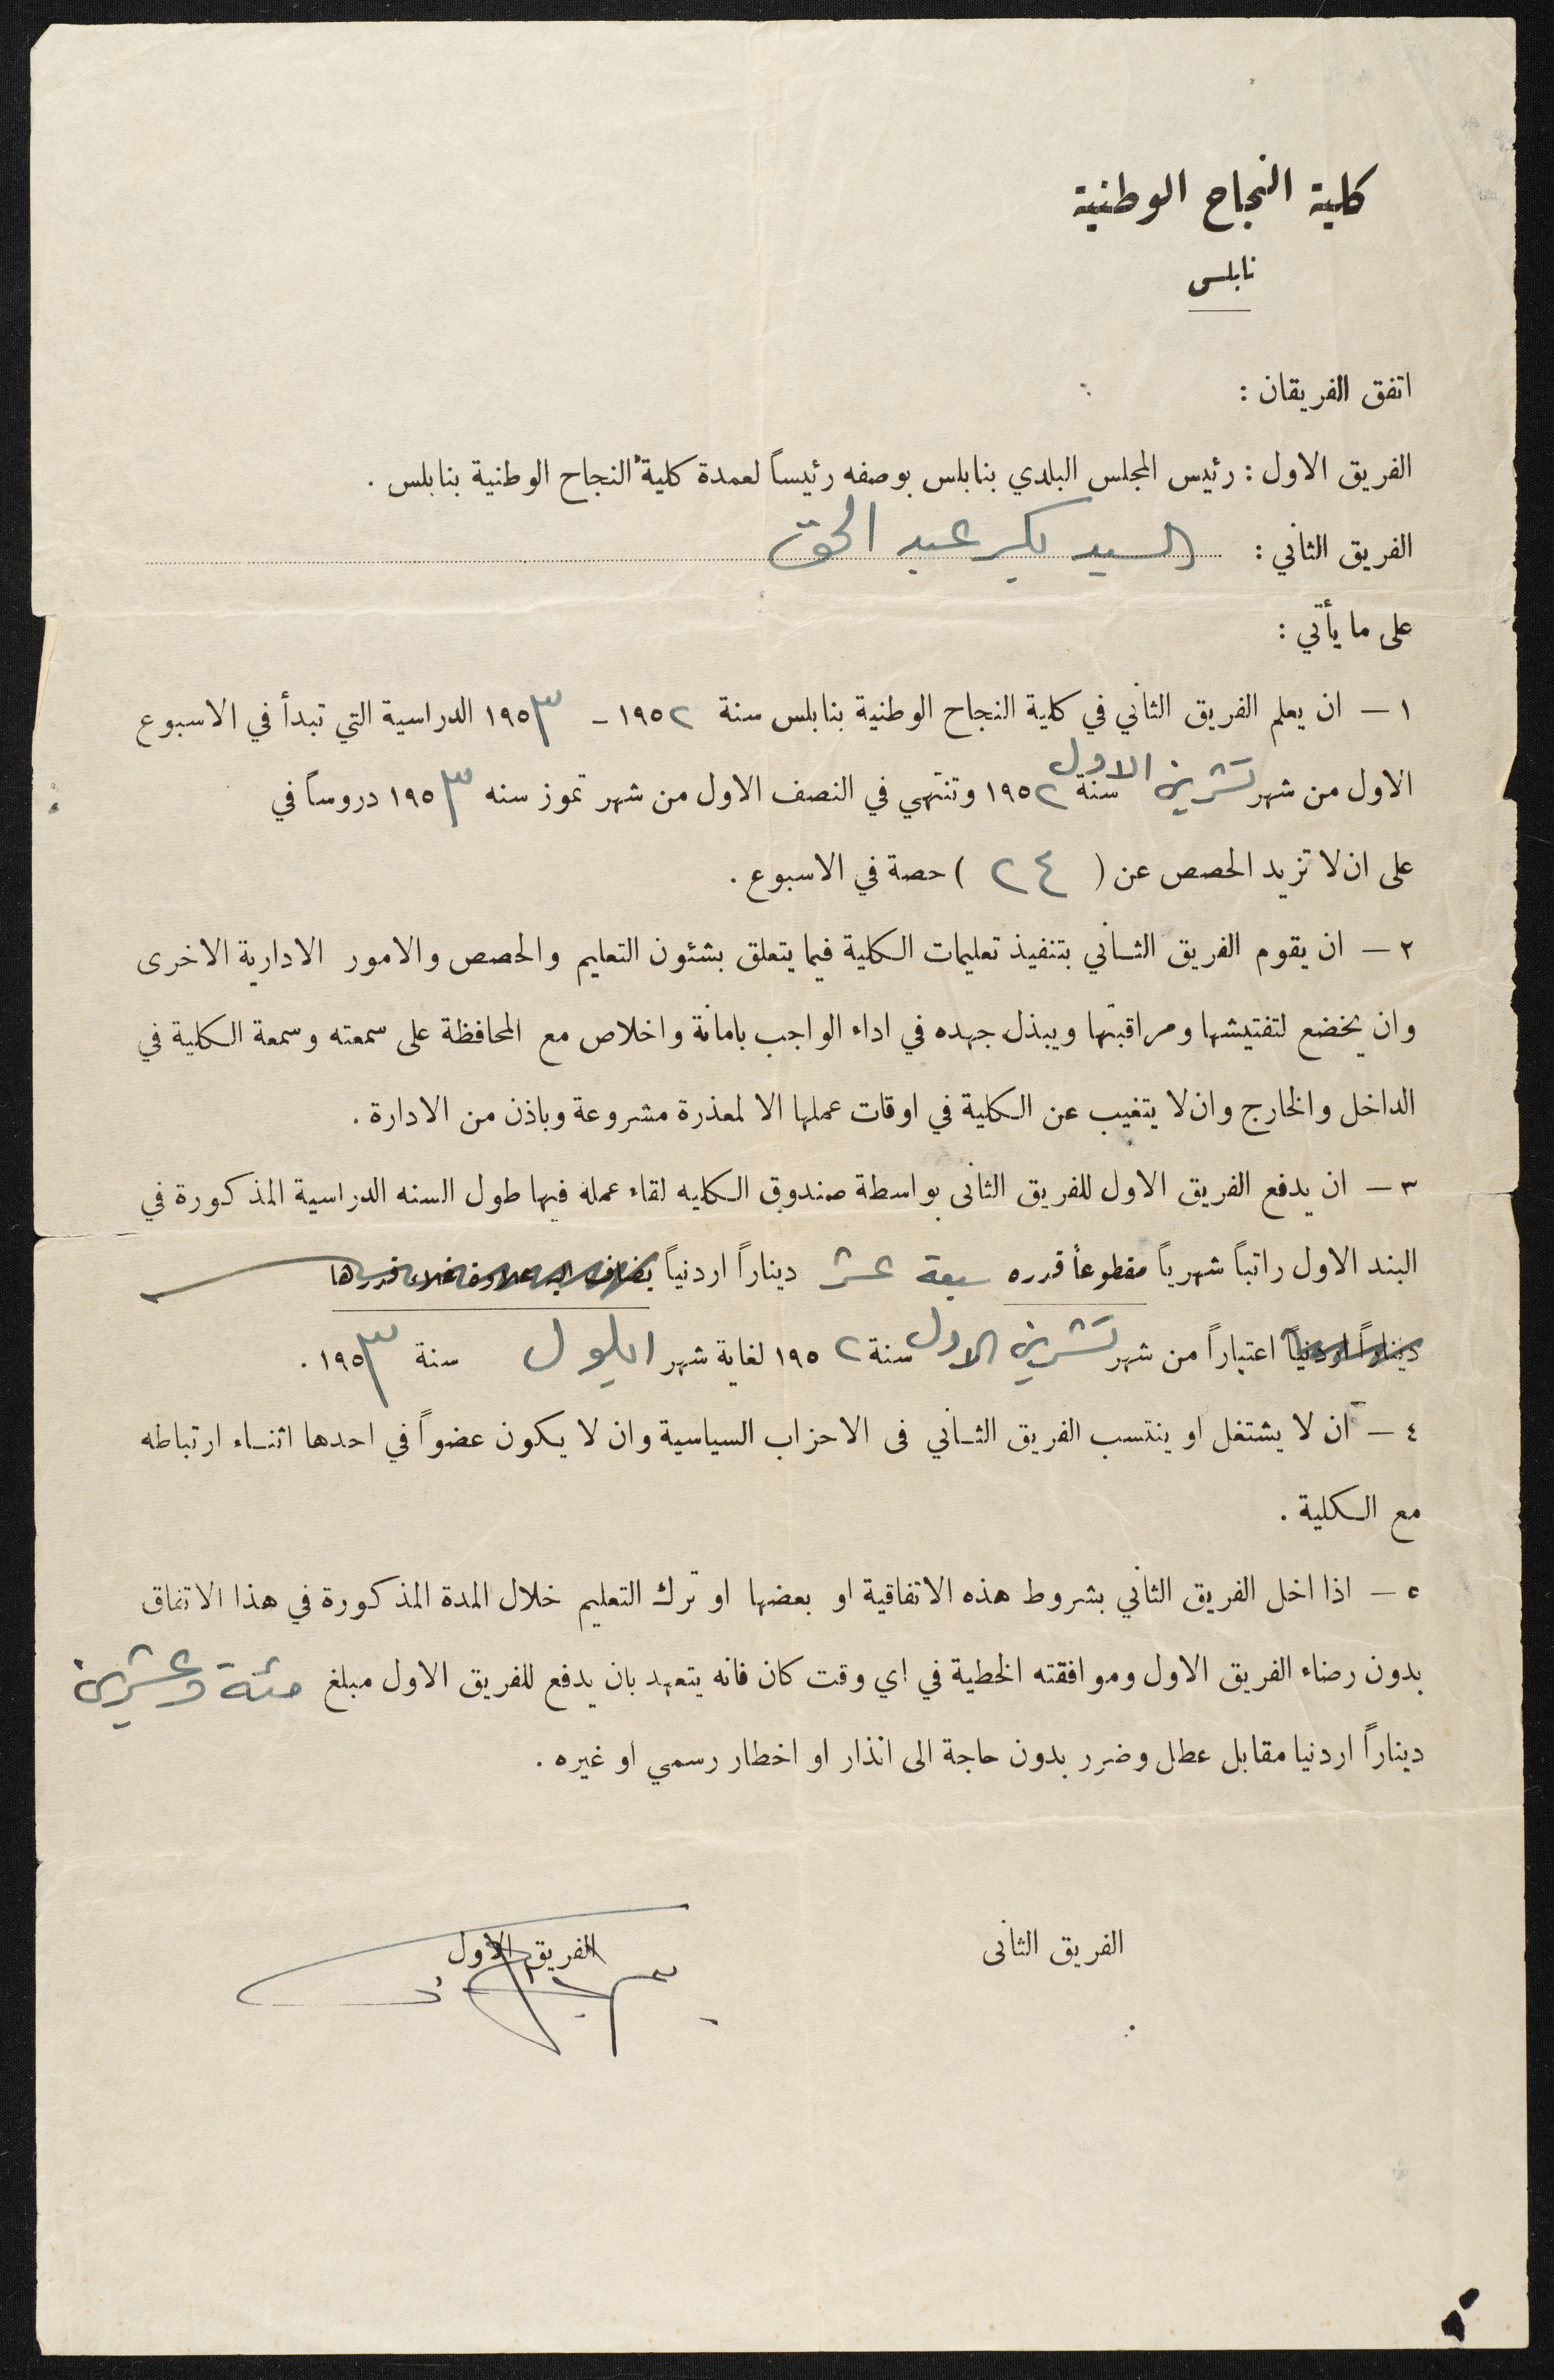 كلية النجاح الوطنية
نابلس
اتفق الفريقان :
الفريق الاول : رئيس المجلس البلدي بنابلس بوصفه رئيساً لعمدة كلية النجاح الوطنية بنابلس .
الفريق الثاني : السيد بكير عبد الحق
على ما يأتي :
١ — ان يعلم الفريق الثاني في كلية النجاح الوطنية بنابلس سنة ١٩٥٢ - ١٩٥٣ الدراسية التي تبدأ في الاسبوع
الاول من شهر تشرين الاول سنة ١٩٥٢ وتنتهي في النصف الاول من شهر تموز سنه ١٩٥٣ دروساً في
على ان لا تزيد الحصص عن ( ٢٤ ) حصة في الاسبوع .
٢ — ان يقوم الفريق الثاني بتنفيذ تعليمات الكلية فيما يتعلق بشئون التعليم والحصص والامور الادارية الاخرى
وان يخضع لتفتيشها ومراقبتها ويبذل جهده في اداء الواجب بامانة واخلاص مع المحافظة على سمعته وسمعة الكلية في
الداخل والخارج وان لا يتغيب عن الكلية في اوقات عملها الا لمعذرة مشروعة وباذن من الادارة .
٣ — ان يدفع الفريق الاول للفريق الثانى بواسطة صندوق الكليه لقاء عمله فيها طول السنه الدراسية المذكورة في
البند الاول راتباً شهرياً مقطوعاً قدره سبعة عشر ديناراً اردنياً يضاف اليه علاوة غلاء قدرها
ديناراً اردنياً اعتباراً من شهر تشرين الاول سنة ١٩٥٢ لغاية شهر ايلول سنة ١٩٥٣ .
٤ — ان لا يشتغل او ينتسب الفريق الثاني فى الاحزاب السياسية وان لا يكون عضواً في احدها اثناء ارتباطه
مع الكلية .
٥ — اذا اخل الفريق الثاني بشروط هذه الاتفاقية او بعضها او ترك التعليم خلال المدة المذكورة في هذا الاتفاق
بدون رضاء الفريق الاول وموافقته الخطية في اي وقت كان فانه يتعهد بان يدفع للفريق الاول مبلغ مئة وعشرين
ديناراً اردنيا مقابل عطل وضرر بدون حاجة الى انذار او اخطار رسمي او غيره .
الفريق الثانى
الفريق الاول